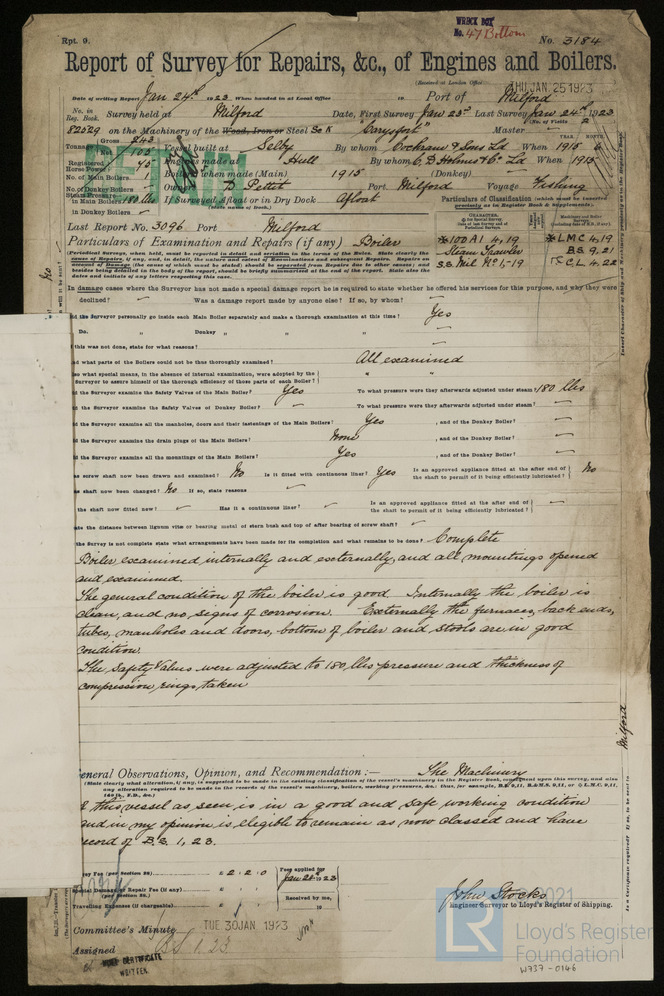 WRECK BOX
No. 47 Bottom
Rpt. 9.
No. 3184
Report of Survey for Repairs, &c., of Engines and Boilers.
(Received at London Office
THU. JAN. 25 1923
Date of writing Report Jan 24th 1923 When handed in at Local Office 19 Port of Milford
No. in Reg. Book. Survey held at Milford Date, First Survey Jan 23rd Last Survey Jan 24th 1923
(No. of Visits 2)
82529 on the Machinery of the Wood, Iron or Steel "Carysfort" Master —
Tonnage Gross 243 Net 103 Vessel built at Selby By whom Cochrane & Sons Ld When 1915 6
Registered Horse Power 75 Engines made at Hull By whom C. D. Holmes & Co Ld When 1915
No. of Main Boilers 1 Boilers when made (Main) 1915 (Donkey) —
No. of Donkey Boilers — Owners D. Pettit Port Milford Voyage Fishing
Steam Pressure in Main Boilers 180 lbs If Surveyed Afloat or in Dry Dock Afloat
(State name of Dock.)
in Donkey Boilers —
Particulars of Classification (which must be inserted precisely as in Register Book & Supplements).
Last Report No. 3096 Port Milford
Particulars of Examination and Repairs (if any) Boiler
*100A1 4,19
Steam Trawler
S.S. Mil No 1,-19
*LMC 4,19
B.S. 9,21
CL 4.22
In damage cases where the Surveyor has not made a special damage report he is required to state whether he offered his services for this purpose, and why they were
declined? — Was a damage report made by anyone else? If so, by whom? —
id the surveyor personally go inside each Main Boiler separately and make a thorough examination at this time? Yes
Do. " Donkey " " " —
this was not done, state for what reasons? —
nd what parts of the Boilers could not be thoroughly examined? All examined
so what special means, in the absence of internal examination, were adopted by the
Surveyor to assure himself of the thorough efficiency of those parts of each Boiler? "
id the Surveyor examine the Safety Valves of the Main Boiler? Yes To what pressure were they afterwards adjusted under steam? 180 lbs
id the Surveyor examine the Safety Valves of Donkey Boiler? — To what pressure were they afterwards adjusted under steam? —
id the Surveyor examine all the manholes, doors and their fastenings of the Main Boilers? Yes , and of the Donkey Boiler? —
id the Surveyor examine the drain plugs of the Main Boilers? None , and of the Donkey Boiler? —
id the Surveyor examine all the mountings of the Main Boilers? Yes , and of the Donkey Boiler? —
as screw shaft now been drawn and examined? No Is it fitted with continuous liner? Yes Is an approved appliance fitted at the after end of the shaft to permit of it being efficiently lubricated? No
as shaft now been changed? No If so, state reasons —
the shaft now fitted new? — Has it a continuous liner? — Is an approved appliance fitted at the after end of the shaft to permit of it being efficiently lubricated? —
ate the distance between lignum vitæ or bearing metal of stern bush and top of after bearing of screw shaft? —
the Survey is not complete state what arrangements have been made for its completion and what remains to be done? Complete
Boiler examined internally and externally, and all mountings opened
and examined.
The general condition of the boiler is good Internally the boiler is
clean, and no signs of corrosion. Externally the furnaces, back ends,
tubes, manholes and doors, bottom of boiler and stools are in good
condition.
The Safety Valves were adjusted to 180 lbs pressure and thickness of
compression rings taken
eneral Observations, Opinion, and Recommendation :— The Machinery
(State clearly what alteration, if any, is suggested to be made in the existing classification of the vessel's machinery in the Register Book, consequent upon this survey, and also
any alteration required to be made in the records of the vessel's machinery, boilers, working pressures, &c.; thus, for example, B.S. 9,11, B.&M.S. 9,11, or L.M.C. 9,11,
140 lb., F.D., &c.)
f this vessel as seen is in a good and safe working condition
and in my opinion is eligible to remain as now classed and have
record of B.S. 1, 23.
ey Fee (per Section 28)... £ 2 : 2 : 0
Fees applied for
Jan 24th 1923
Special Damage or Repair Fee (if any)
(per Section 28)
Received by me,
Travelling Expenses (if chargeable)
19
John Stocks
Engineer Surveyor to Lloyd's Register of Shipping.
Committee's Minute TUE. 30 JAN 1923
Assigned BS 1.23
CERTIFICATE
WRITTEN.
Milford
LR
2021
Lloyd's Register
Foundation
W737-0146